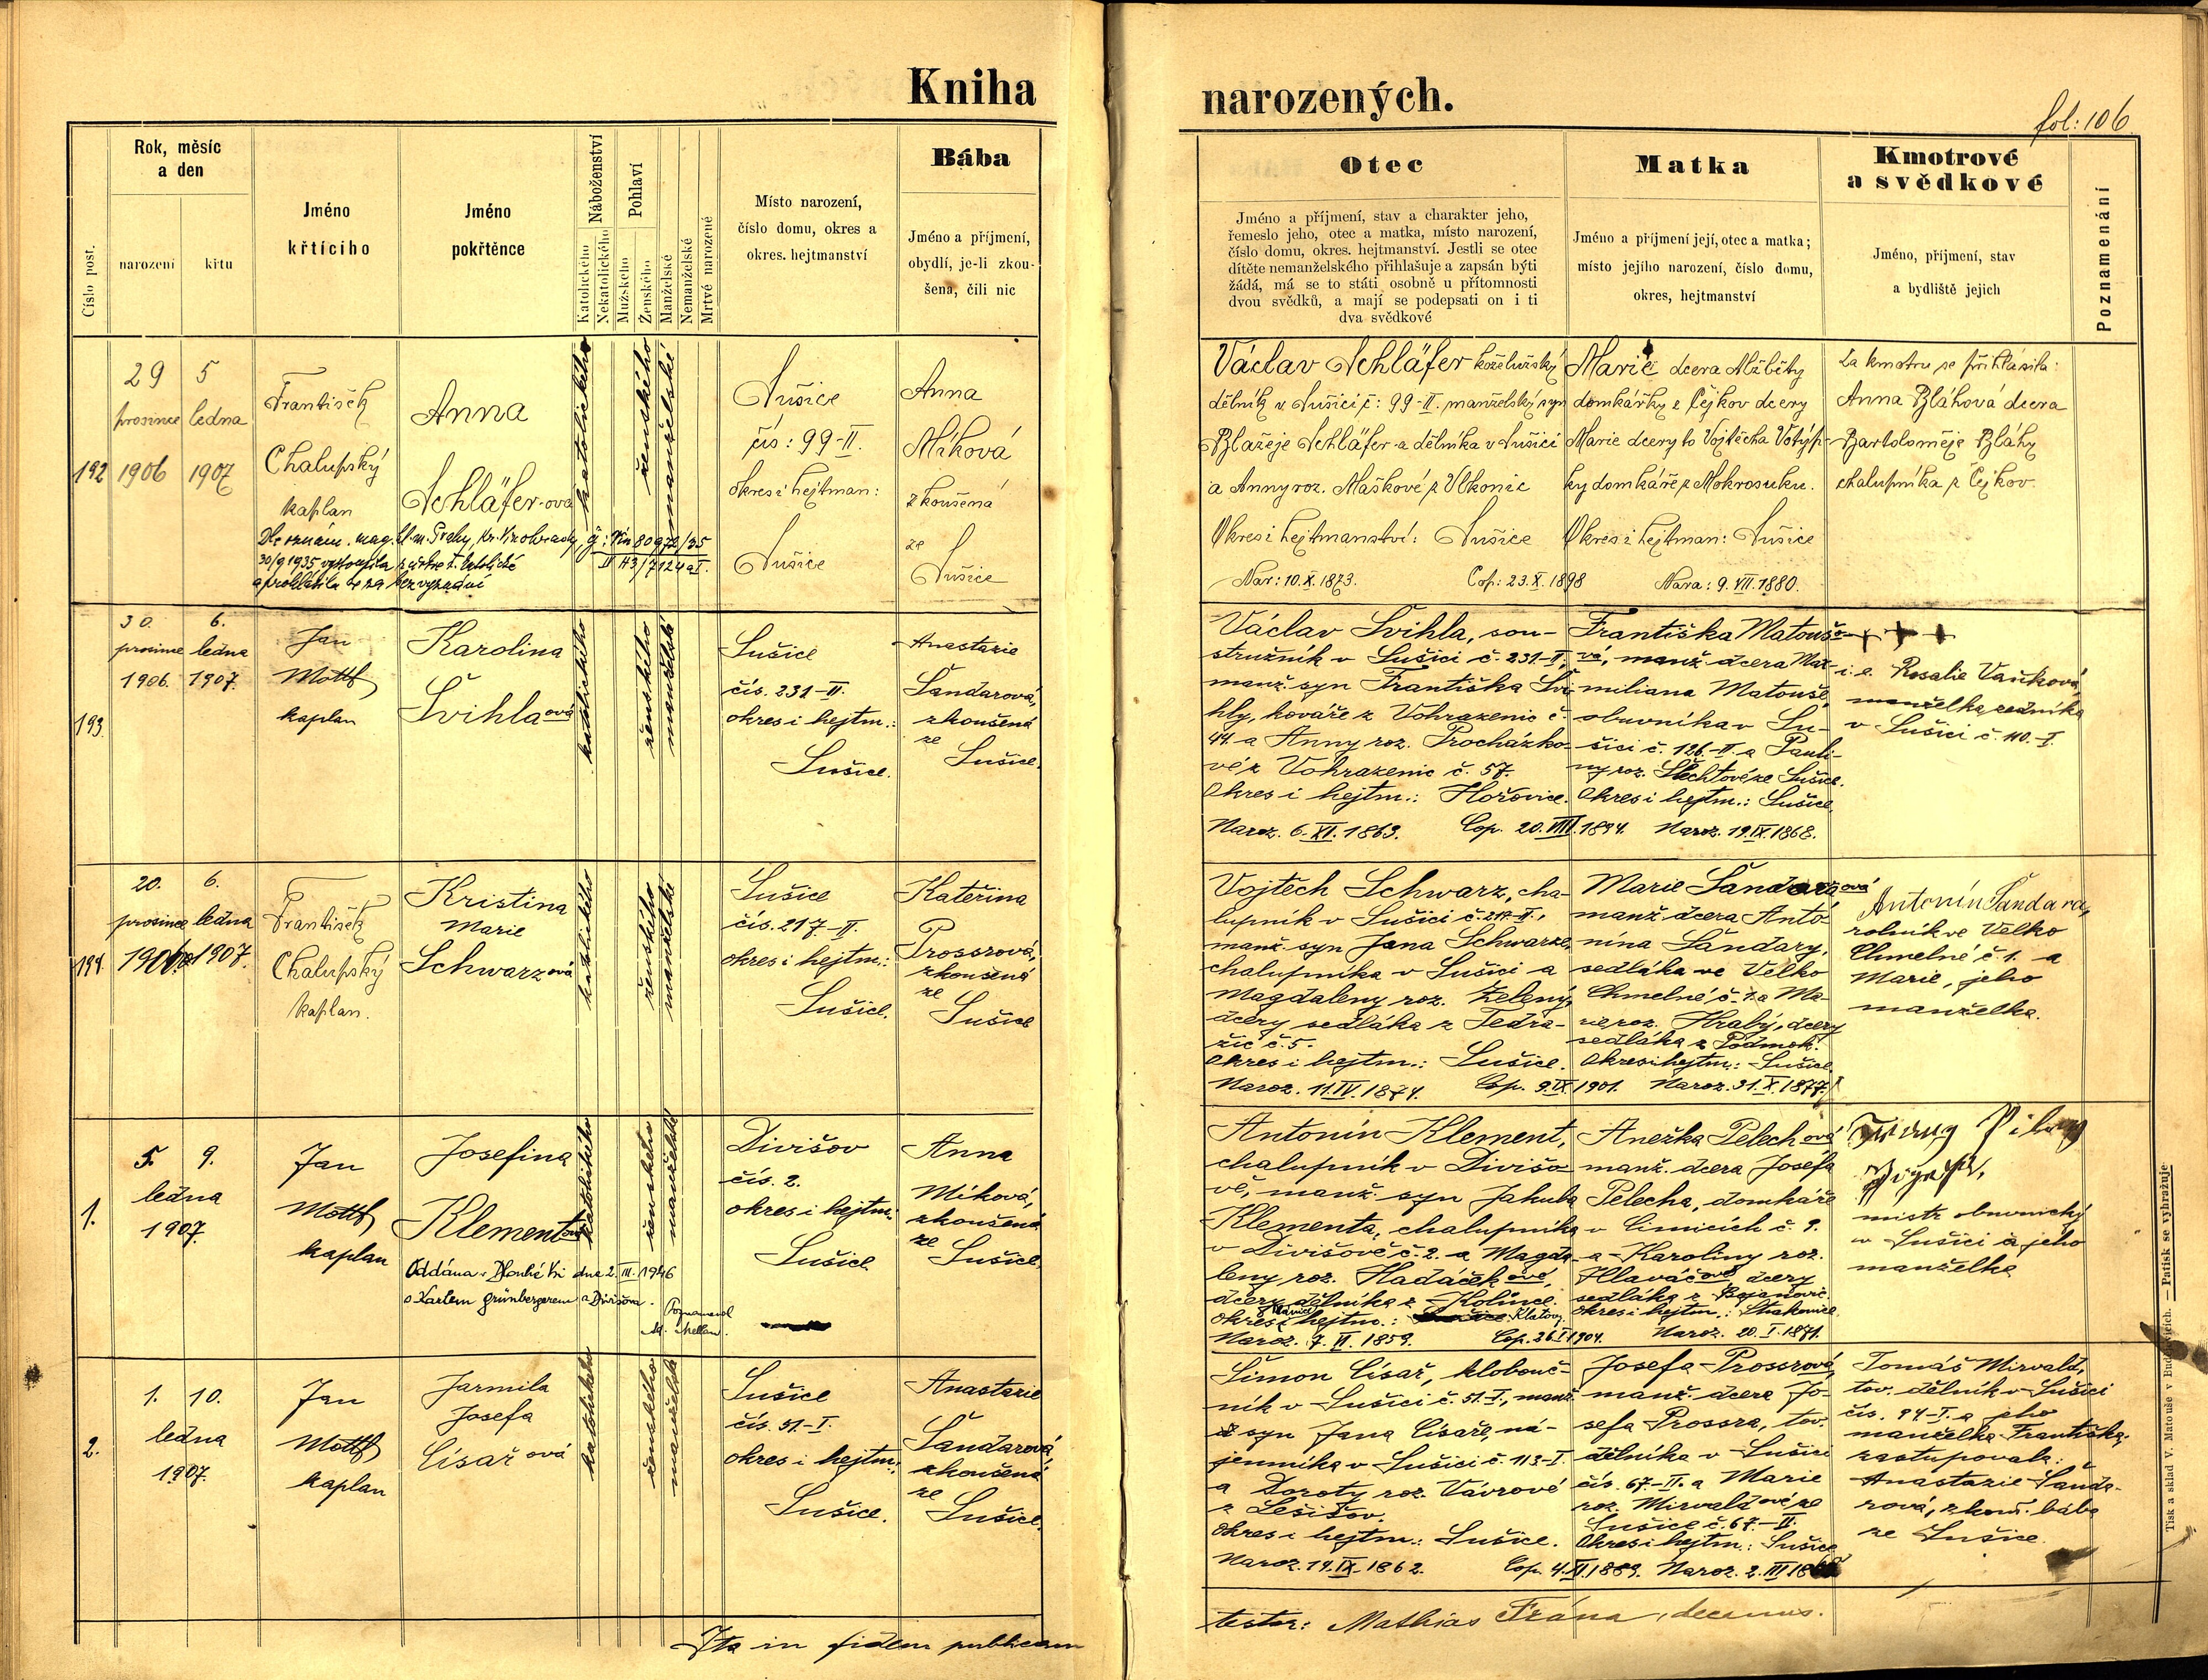 Kniha
narozených.
fol: 106.
Číslo post.
Rok, měsíc
a den
narození
křtu
Jméno
křtícího
Jméno
pokřtěnce
Náboženství
Katolického
Nekatolického
Pohlaví
Mužského
Ženského
Manželské
Nemanželské
Mrtvě narozené
Místo narození,
číslo domu, okres a
okres. hejtmanství
Bába
Jméno a příjmení,
obydlí, je-li zkou-
šena, čili nic
Otec
Jméno a příjmení, stav a charakter jeho,
řemeslo jeho, otec a matka, místo narození,
číslo domu, okres. hejtmanství. Jestli se otec
dítěte nemanželského přihlašuje a zapsán býti
žádá, má se to státi osobně u přítomnosti
dvou svědků, a mají se podepsati on i ti
dva svědkové
Matka
Jméno a příjmení její, otec a matka;
místo jejího narození, číslo domu,
okres, hejtmanství
Kmotrové
a svědkové
Jméno, příjmení, stav
a bydliště jejich
Poznamenání
192
29
prosince
1906
5
ledna
1907
František
Chalupský
kaplan
Anna
Schläfer-ová
katolického
ženského
manželské
30/9 1935 vystoupila z církve ř. katolické
a prohlásila se za bez vyznání
Sušice
čís: 99-II.
Okres i hejtman:
Sušice
Anna
Míková
zkoušená
ze
Sušice
Václav Schläfer koželužský
dělník v Sušici č: 99-II. manželský syn
Blažeje Schläfer-a dělníka v Sušici
a Anny roz. Maškové z Vlkonic
Okres i hejtmanství: Sušice
Nar: 10.X.1873. Cop: 23.X.1898
Marie dcera Alžběty
domkářky z Čejkov dcery
Marie dcery to Vojtěcha Votýp-
ky domkáře z Mokrosuku.
Okres i hejtman: Sušice
Nara: 9.VII.1880.
Za kmotru se přihlásila:
Anna Bláhová dcera
Bartoloměje Bláhy
chalupníka z Čejkov.
193.
30.
prosince
1906.
6.
ledna
1907.
Jan
Mottl
kaplan
Karolina
Švihla ová
katolického
ženského
manželské
Sušice
čís. 231-II.
okres i hejtm.:
Sušice.
Anastazie
Šandarová,
zkoušená
ze
Sušice.
Václav Švihla, sou-
stružník v Sušici č. 231-II,
manž. syn Františka Švi-
hly, kováře z Vohrazenic č.
44. a Anny roz. Procházko-
vé z Vohrazenic č. 57.
Okres i hejtm.: Hořovice.
Naroz. 6.XI.1869. Cop. 20.VIII.1894.
Františka Matoušo-
vá, manž. dcera Max-
miliana Matouše,
obuvníka v Su-
šici č. 126-II. a Pauli-
ny roz. Šlechtové ze Sušice.
Okres i hejtm.: Sušice.
Naroz. 19.IX.1868.
+ + +
Rosalie Vaňková,
manželka zedníka
v Sušici č. 110-I.
194.
20.
prosince
1906
6.
ledna
1907.
František
Chalupský
kaplan.
Kristina
Marie
Schwarzová
katolického
ženského
manželské
Sušice
čís. 217-II.
okres i hejtm.:
Sušice.
Kateřina
Prossrová,
zkoušená
ze
Sušice
Vojtěch Schwarz, cha-
lupník v Sušici č. 217-II.,
manž. syn Jana Schwarze,
chalupníka v Sušici a
Magdaleny roz. Zelený,
dcery sedláka z Tedra-
žic č. 5.
Okres i hejtm.: Sušice.
Naroz. 11.IV.1874. Cop. 9.IX.1901.
Marie Šandarová
manž. dcera Anto-
nína Šandary,
sedláka ve Velko
Chmelné č. 1. a Ma-
rie roz. Hrabý, dcery
sedláka z Podmok.
Okres i hejtm.: Sušice
Naroz. 31.X.1877.
Antonín Šandara,
rolník ve Velko
Chmelné č. 1. a
Marie, jeho
manželka.
1.
5. 9.
ledna
1907.
Jan
Mottl
kaplan
Josefina
Klementová
Oddána v Dlouhé Vsi dne 2.III.1946
s Karlem Grünbergerem z Divišova.
katolického
ženského
manželské
Divišov
čís. 2.
okres i hejtm.:
Sušice
Anna
Míková,
zkoušená
ze
Sušice.
Antonín Klement,
chalupník v Divišo-
vě, manž. syn Jakuba
Klementa, chalupníka
v Divišově č. 2. a Magda-
leny roz. Hadáčkové,
dcery dělníka z Kolince.
okres i hejtm.: Klatovy.
Naroz. 7.II.1859. Cop. 26.I.1904.
Anežka Pelechová
manž. dcera Josefa
Pelecha, domkáře
v Čimicích č. 9.
a Karoliny roz.
Hlaváčové dcery
sedláka z Bojanovic.
okres i hejtm.: Strakonice
Naroz. 20.I.1871.
mistr obuvnický
v Sušici a jeho
manželka
2.
1. 10.
ledna
1907.
Jan
Mottl
kaplan
Jarmila
Josefa
Císařová
katolického
ženského
manželské
Sušice
čís. 51-I.
okres i hejtm.:
Sušice.
Anastazie
Šandarová,
zkoušená
ze
Sušice.
Šimon Císař, klobouč-
ník v Sušici č. 51-I., manž.
syn Jana Císaře, ná-
jemníka v Sušici č. 113-I.
a Doroty roz. Vávrové
z Lešišov.
Okres i hejtm.: Sušice.
Naroz. 14.IX.1862. Cop. 4.XI.1889.
Josefa Prossrová,
manž. dcera Jo-
sefa Prossra, tov.
dělníka v Sušici
čís. 67-II. a Marie
roz. Mirvaldové ze
Sušice č. 67-II.
Okres i hejtm.: Sušice
Naroz. 2.III.
Tomáš Mirvald,
tov. dělník v Sušici
čís. 94-I. a jeho
manželka Františka,
zastupovala:
Anastazie Šanda-
rová, zkouš. bába
ze Sušice.
Ita in fidem publicam
testor: Mathias Frána, decanus.
Tisk a sklad V. Matouše v Budějicích. — Patisk se vyhražuje